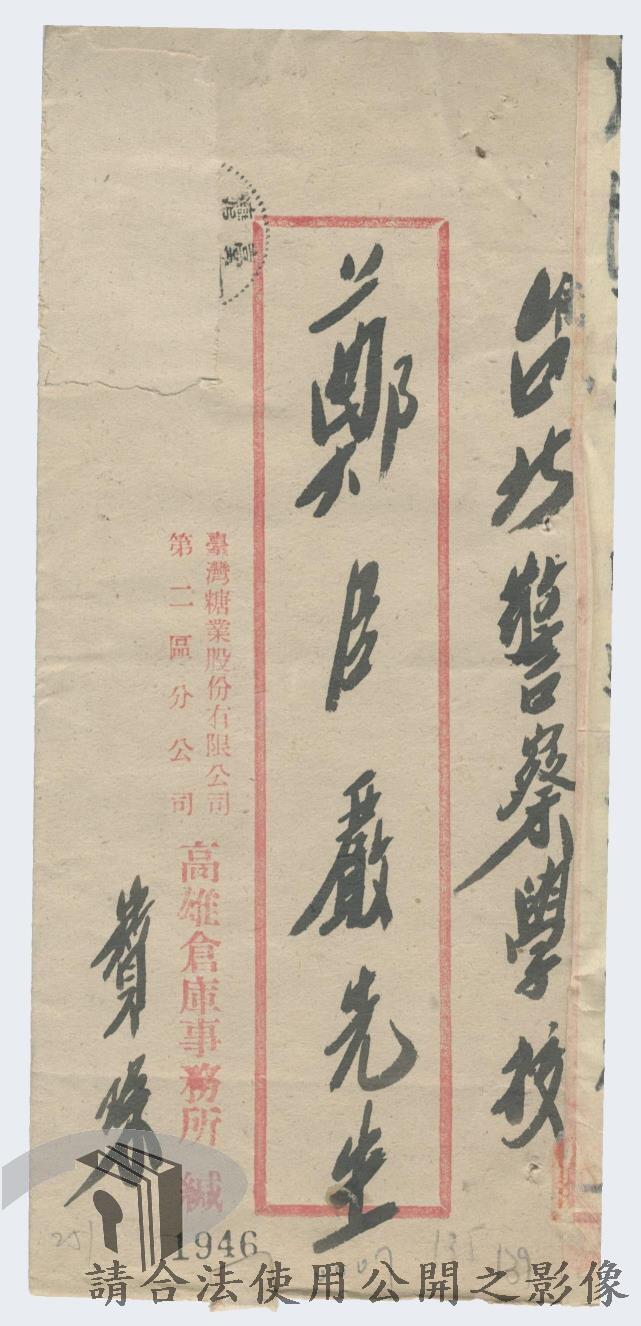 台北警察學校
鄭臣嚴先生
臺灣
臺灣糖業股份有限公司
第二區分公司
高雄倉庫事務所 緘
1946
251
135
139
請合法使用公開之影像